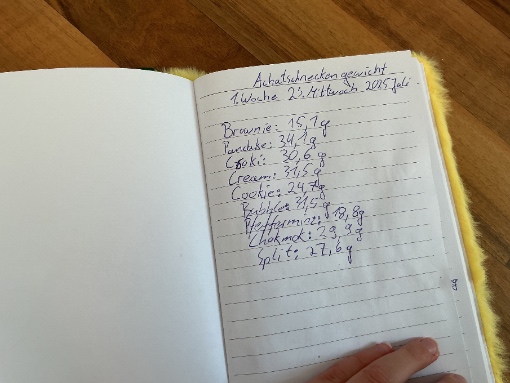 Achatschneckengewicht
1. Woche 23. Mittwoch 2025 Juli
Brownie: 15,1g
Pancake: 34,1g
Cooki: 30,6g
Cream: 31,5g
Cookie: 24,7g
Bubble: 31,5g
Pfefferminz: 18,8g
Chokmok: 29,9g
Split: 27,6g
g